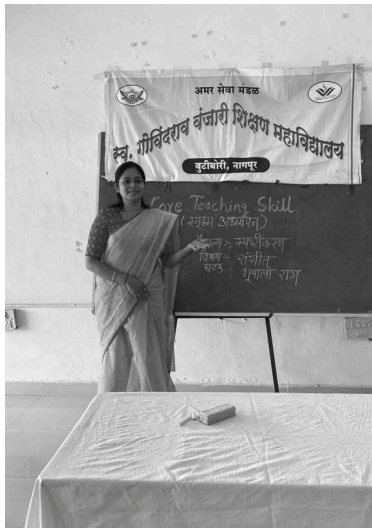 अमर सेवा मंडळ
स्व. गोविंदराव वंजारी शिक्षण महाविद्यालय
बुटीबोरी, नागपूर
Core Teaching Skill
(सूक्ष्म अध्यापन)
कौशल्य :- स्पष्टीकरण
विषय :- संगीत
घटक :- भूपाली राग